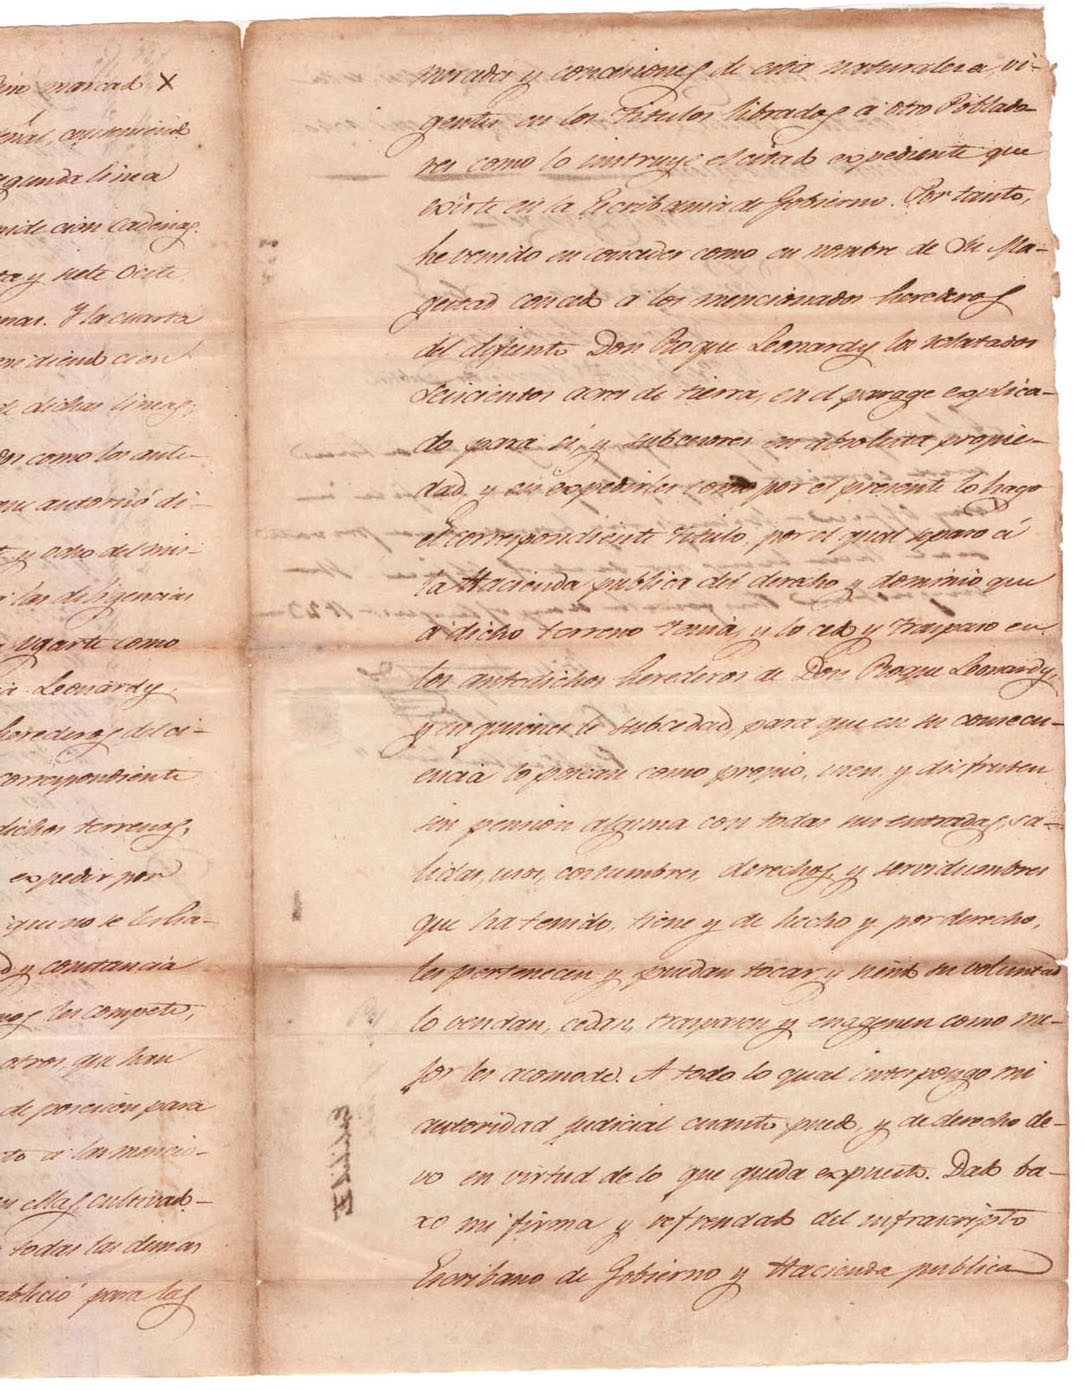 marcad X
egunda linea
mide cien cadenas.
ta y siete Oeste
Y la cuarta
midiend cien
de dichas lineas;
como los ante-
que autorisó di-
y ocho del mis-
las diligencias
Ugarte como
Leonardy,
herederos del ci-
correspondiente
dichos terrenos,
expedir por
que no se les ha-
y constancia
les compete,
otros que han
de posesion para
a las mencio-
cultivad-
todas las demas
ablició para las
moradas y concesiones de esta naturaleza, vi-
gentes en los Titulos librados á otro Poblado-
res como lo instruye el citad expediente que
existe en la Escribania de Gobierno. Por tanto,
he venido en conceder como en nombre de Su Ma-
gestad conced á los mencionados herederos
del difunto Don Roque Leonardy los relatados
seiscientos acres de tierra, en el parage explica-
do para si, y subcesores en absoluta propie-
dad, y en expedirles como por el presente lo hago
el correspondiente titulo, por el qual separo á
la Hacienda publica del derecho y dominio que
a dicho terreno tenia, y lo ced y traspaso en
los antedichos herederos de Don Roque Leonardy,
y en quienes le subcedad, para que en su consecu-
encia lo posean como propio, usen y disfruten
sin pension alguna con todas sus entradas, sa-
lidas, usos, costumbres, derechos, y servidumbres
que ha tenido, tiene y de hecho y por derecho,
les pertenecen y puedan tocar, y siend su voluntad
lo vendan, cedan, traspasen y enagenen como me-
jor les acomode. A todo lo qual interpongo mi
autoridad judicial cuanto pued, y de derecho de-
vo en virtud de lo que queda expuesto. Dad ba-
xo mi firma y refrendad del infrascripto
Escribano de Gobierno y Hacienda publica